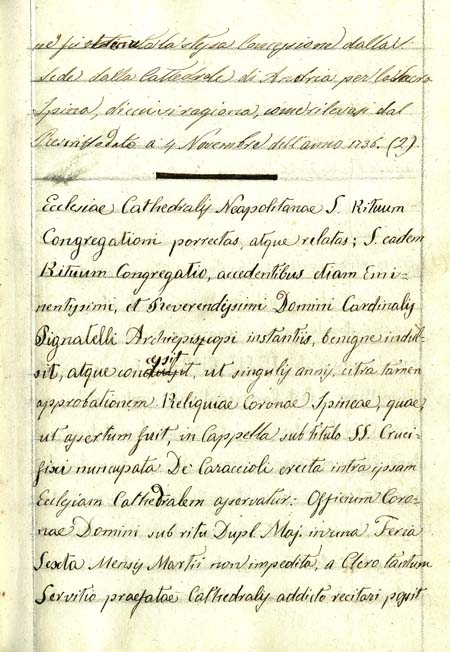 ne fu ottenuta la stessa Concessione dalla S.
Sede dalla Cattedrale di Andria per la Sacra
Spina, di cui si ragiona, come rilevasi dal
Rescritto dato a 4 Novembre dell'anno 1736. (2).
Ecclesiae Cathedralis Neapolitanae S. Rituum
Congregationi porrectas, atque relatas; S. eadem
Rituum Congregatio, accedentibus etiam Emi-
nentissimi, et Reverendissimi Domini Cardinalis
Pignatelli Archiepiscopi instantiis, benigne indul-
sit, atque concessit, ut singulis annis, citra tamen
approbationem Reliquiae Coronae Spineae, quae,
ut assertum fuit, in Cappella sub titulo SS. Cruci-
fixi nuncupata De Caraccioli erecta intra ipsam
Ecclesiam Cathedralem asservatur: Officium Coro-
nae Domini sub ritu Dupl. Maj. in una Feria
Sexta Mensis Martii non impedita, a Clero tantum
Servitio praefatae Cathedralis addicto recitari possit